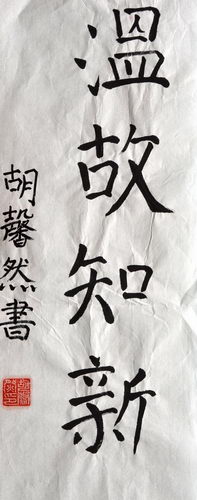 溫故知新
胡馨然書